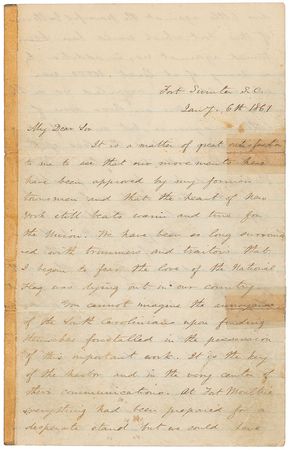 Fort Sumter S.C.
Jany. 6th 1861
My Dear Sir
It is a matter of great satisfaction
to me to see that our movements here
have been approved by my former
townsmen and that the heart of New
York still beats warm and true for
the Union. We have been so long surround
ed with trimmers and traitors that
I began to fear the love of the National
flag was dying out in our country
You cannot imagine the annoyance
of the South Carolinians upon finding
themselves forestalled in the possession
of this important work. It is the key
of the harbor and in the very center of
their communications. At Fort Moultrie
everything had been prepared for a
desperate stand but we could have